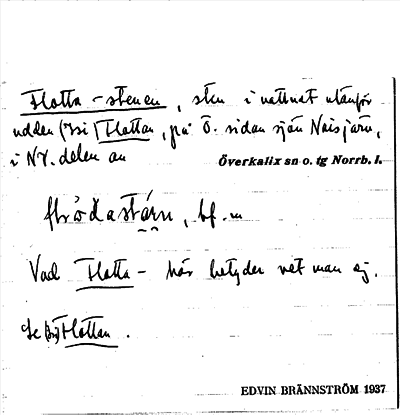 Flotta-stenen, sten i vattnet utanför
udden (Bsi) Flottan, på Ö. sidan sjön Naisjärv,
i NV. delen av Överkalix sn o. tg Norrb. l.
bf. m
Vad Flotta- här betyder vet man ej.
Se (Bsi) Flottan.
EDVIN BRÄNNSTRÖM 1937